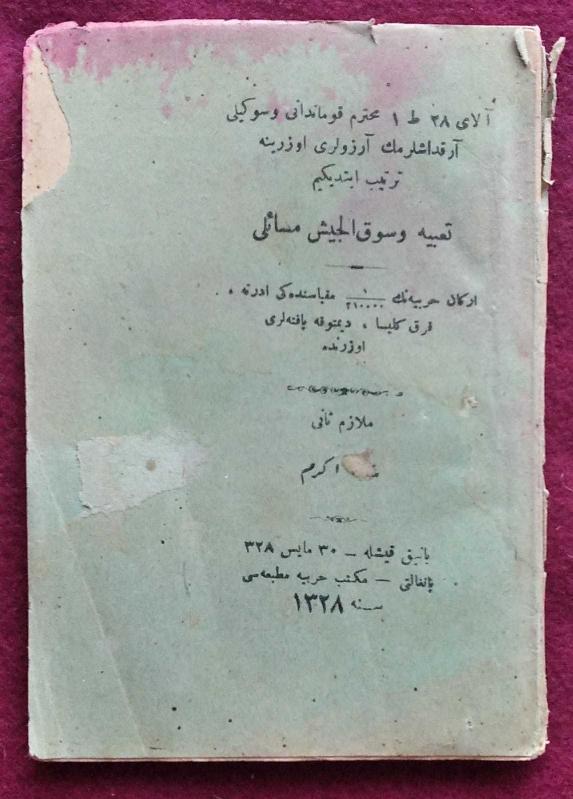 آلای ٢٨ ط ١ محترم قوماندانی وسوكیلی
آرقداشلرمك آرزولری اوزرینه
ترتیب ایتدیكیم
تعبیه وسوق الجیش مسائلی
اركان حربیه‌نك ١/٢١٠٠٠٠ مقیاسنده‌كی ادرنه ،
قرق كلیسا ، دیمتوقه پافته‌لری
اوزرنده
ملازم ثانی
اكرم
یانیق قیشله – ٣٠ مایس ٣٢٨
پانغالتی – مكتب حربیه مطبعه‌سی
سنه ١٣٢٨